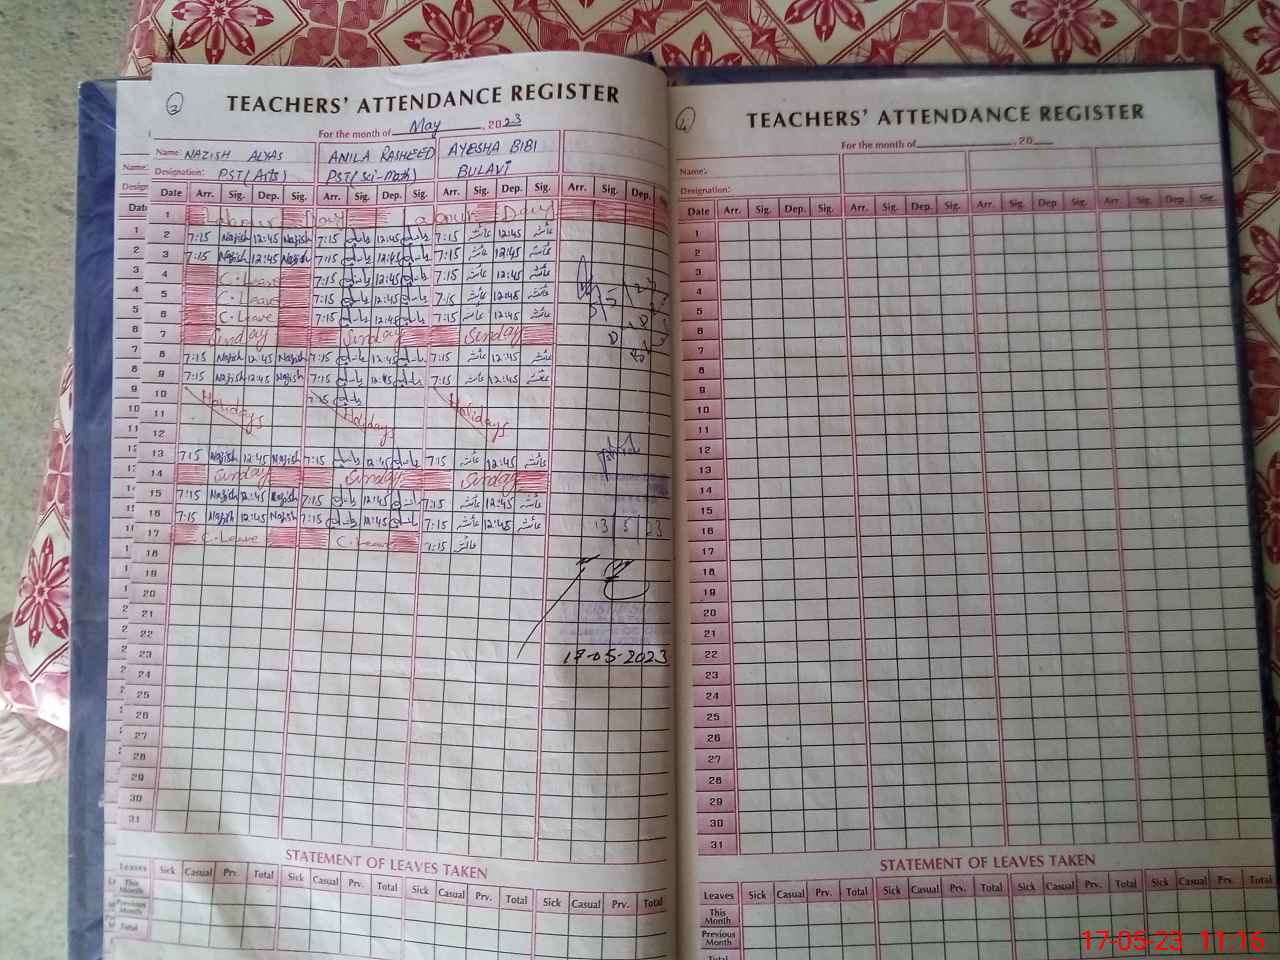 2
TEACHERS' ATTENDANCE REGISTER
For the month of May, 2023
Name: NAZISH ALYAS ANILA RASHEED AYESHA BIBI
Designation: PST(Arts) PST(Sci-Math) BULAVi
Date Arr. Sig. Dep. Sig. Arr. Sig. Dep. Sig. Arr. Sig. Dep. Sig. Arr. Sig. Dep.
1 Labour Day Labour Day
2 7:15 Nazish 12:45 Nazish 7:15 12:45 7:15 عائشہ 12:45 عائشہ
3 7:15 Nazish 12:45 Nazish 7:15 12:45 7:15 عائشہ 12:45 عائشہ
4 C.Leave 7:15 12:45 7:15 عائشہ 12:45 عائشہ
5 C.Leave 7:15 12:45 7:15 عائشہ 12:45 عائشہ
6 C.Leave 7:15 12:45 7:15 عائشہ 12:45 عائشہ
7 Sunday Sunday Sunday
8 7:15 Nazish 12:45 Nazish 7:15 12:45 7:15 عائشہ 12:45 عائشہ
9 7:15 Nazish 12:45 Nazish 7:15 12:45 7:15 عائشہ 12:45 عائشہ
10 7:15
11 Holidays Holidays Holidays
12
13 7:15 Nazish 12:45 Nazish 7:15 12:45 7:15 عائشہ 12:45 عائشہ
14 Sunday Sunday Sunday
15 7:15 Nazish 12:45 Nazish 7:15 12:45 7:15 عائشہ 12:45 عائشہ
16 7:15 Nazish 12:45 Nazish 7:15 12:45 7:15 عائشہ 12:45 عائشہ
13 5 23
17 C.Leave C.Leave 7:15 عائشہ
18
19
20
21
22
23
17-05-2023
24
25
26
27
28
29
30
31
STATEMENT OF LEAVES TAKEN
Leaves Sick Casual Prv. Total Sick Casual Prv. Total Sick Casual Prv. Total Sick Casual Prv. Total
This Month
Previous Month
Total
4
TEACHERS' ATTENDANCE REGISTER
For the month of , 20
Name:
Designation:
Date Arr. Sig. Dep. Sig. Arr. Sig. Dep. Sig. Arr. Sig. Dep. Sig. Arr. Sig. Dep. Sig.
1
2
3
4
5
6
7
8
9
10
11
12
13
14
15
16
17
18
19
20
21
22
23
24
25
26
27
28
29
30
31
STATEMENT OF LEAVES TAKEN
Leaves Sick Casual Prv. Total Sick Casual Prv. Total Sick Casual Prv. Total Sick Casual Prv. Total
This Month
Previous Month
Total
17-05-23 11:16